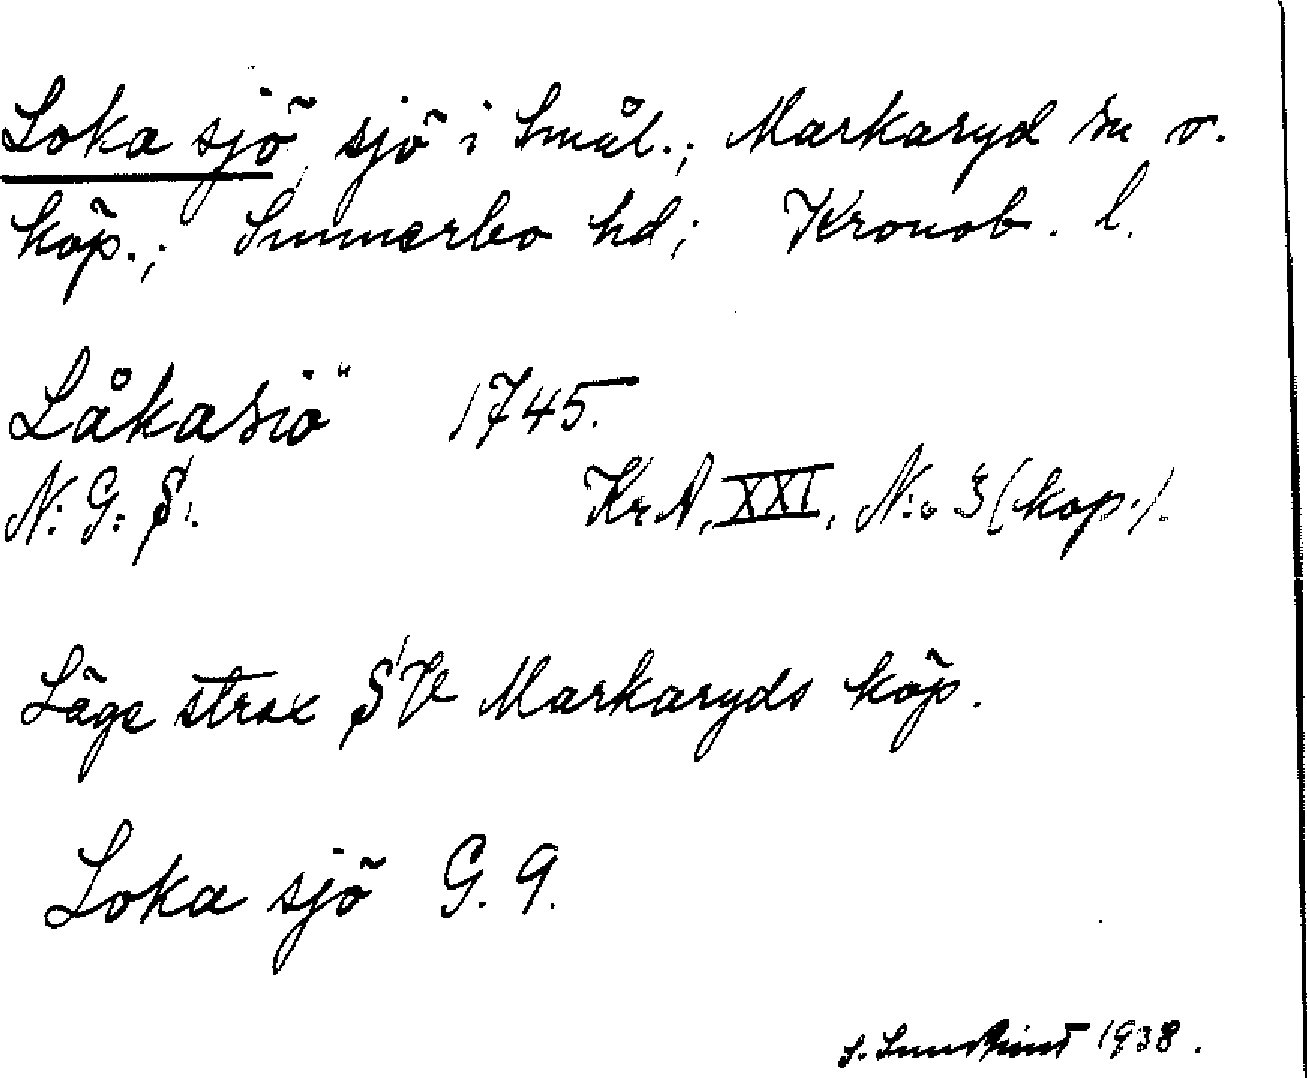 Loka sjö, sjö i Smål.; Markaryd sn o.
köp.; Sunnerbo hd; Kronob. l.
Låkasiö 1745.
N: G: S.
KrA, XXI, N:o 3 (kop.).
Läge strax SV Markaryds köp.
Loka sjö G. 9.
1938.